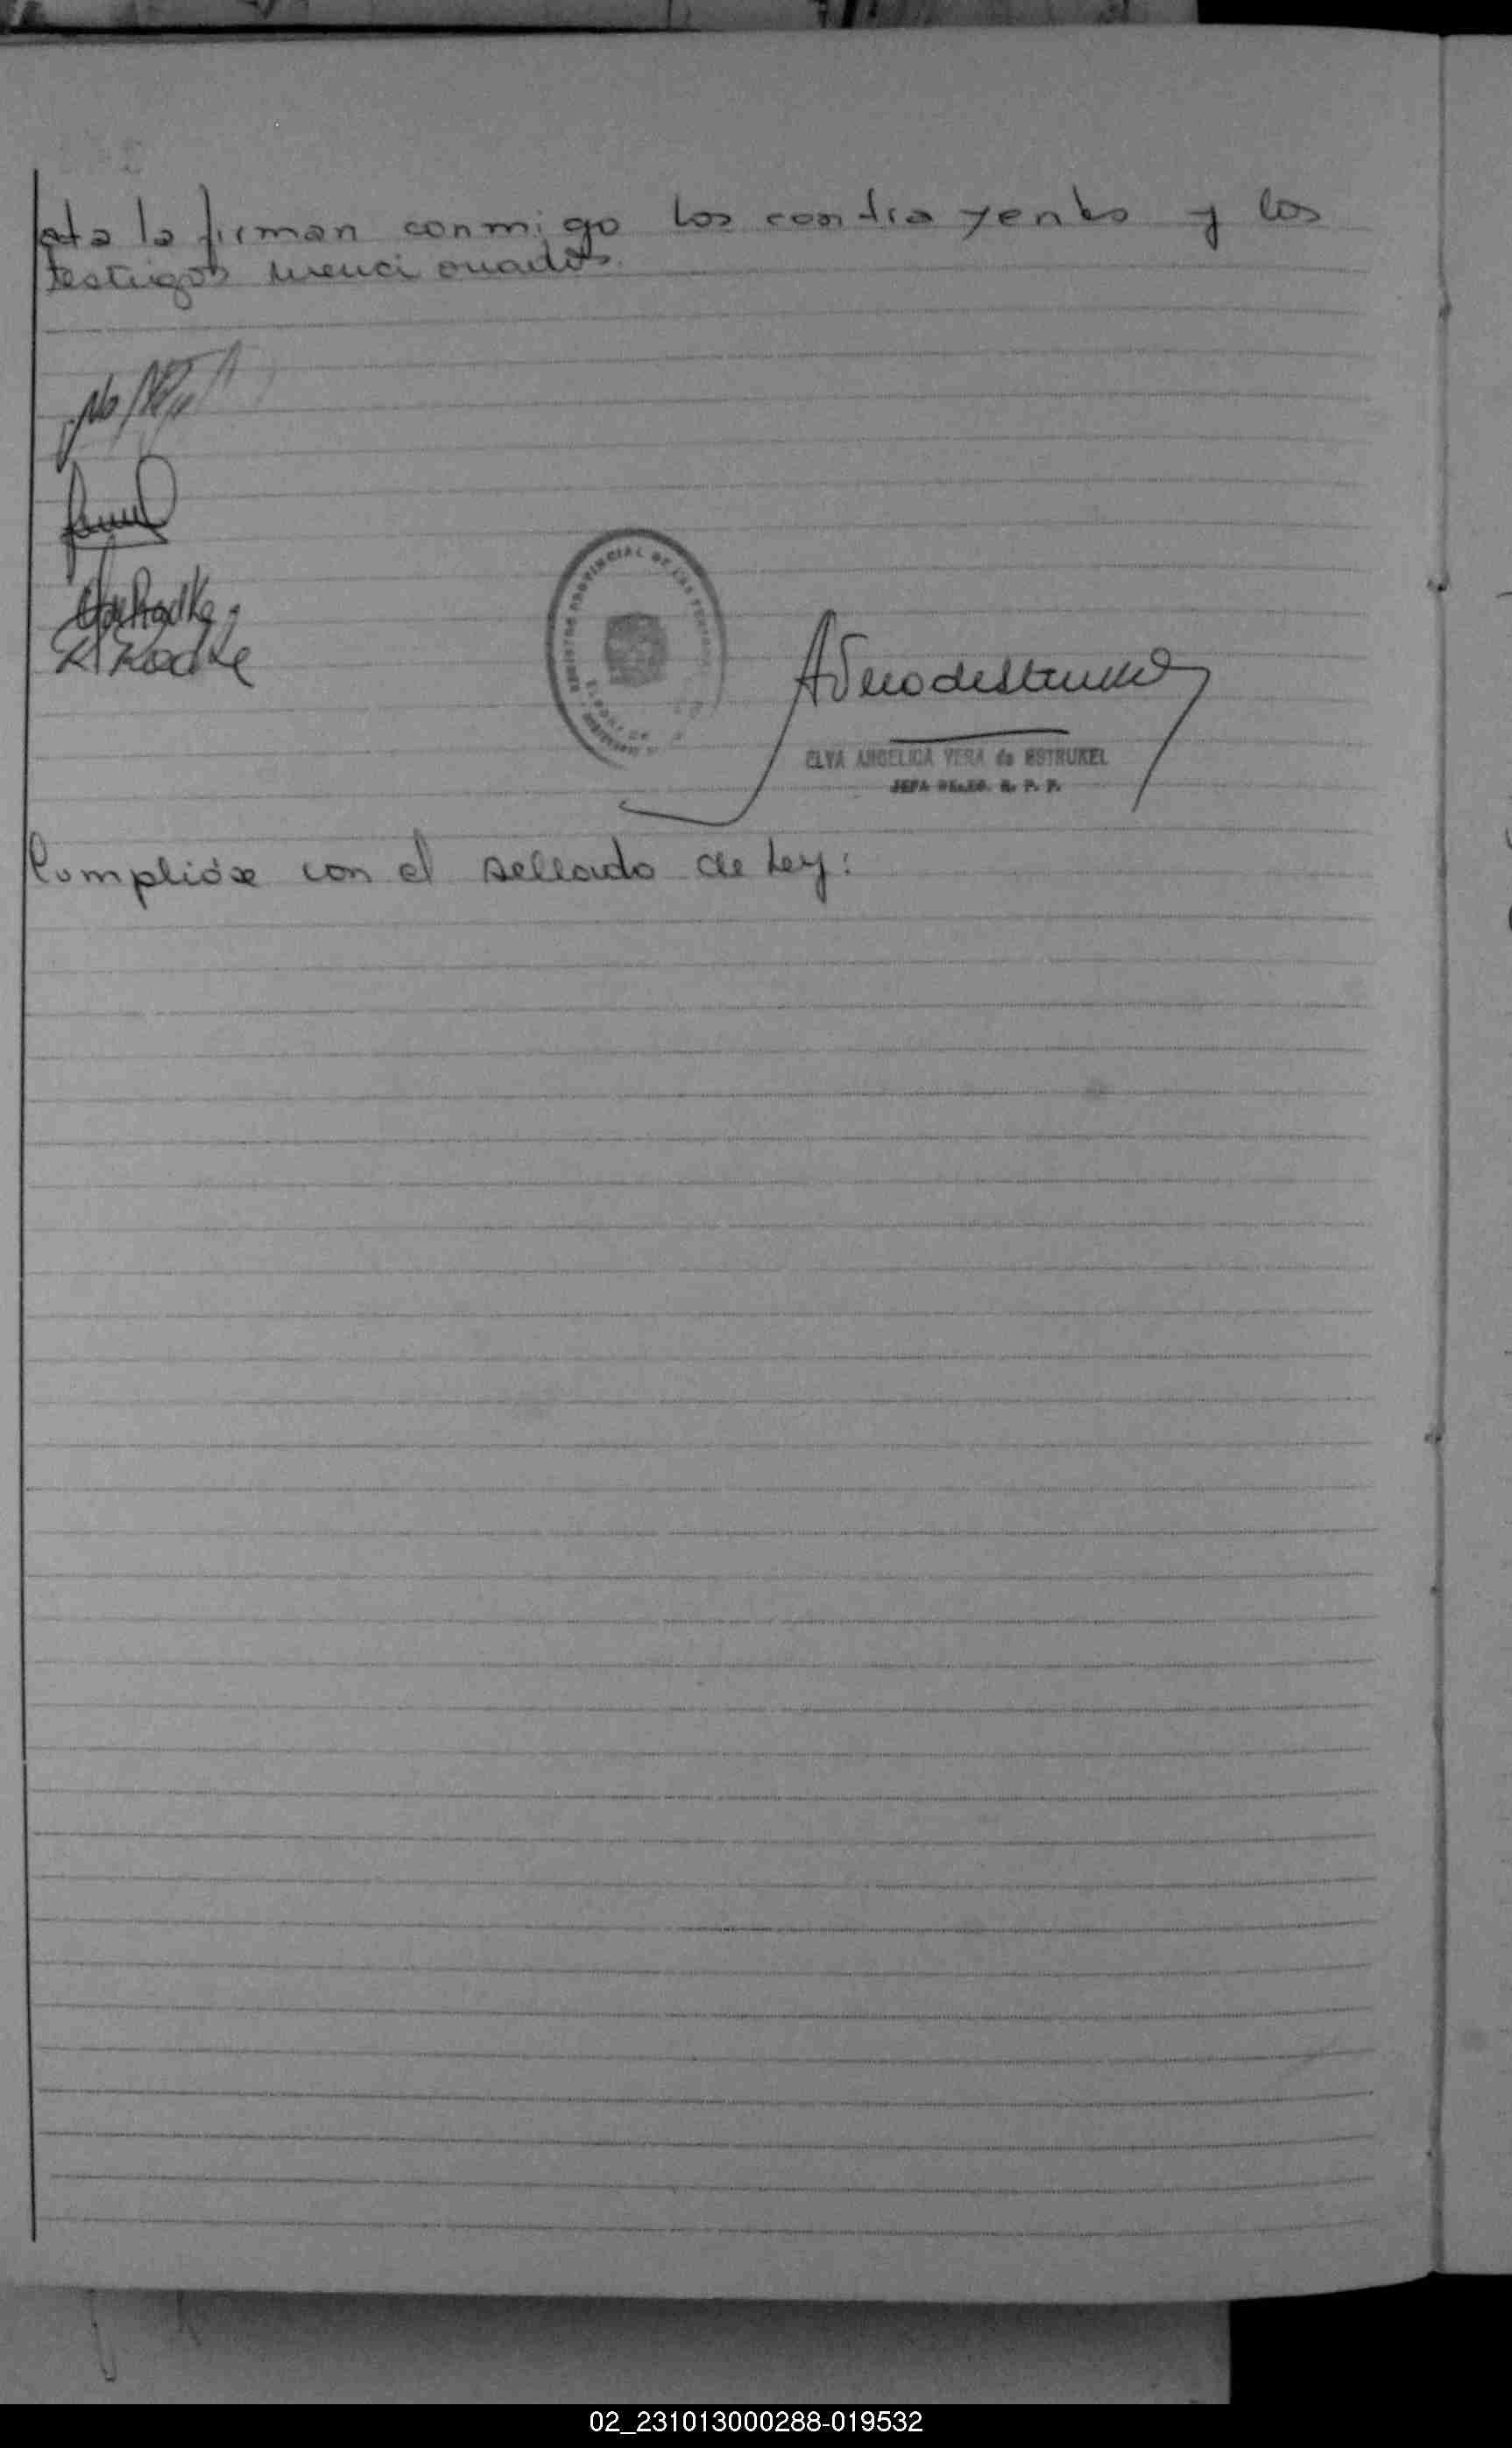 acta la firman conmigo los contrayentes y los
testigos mencionados.
K Radke
REGISTRO PROVINCIAL DE LAS PERSONAS
ELVA ANGELICA VERA de ESTRUKEL
JEFA DELEG. R. P. P.
Cumplióse con el sellado de Ley:
02_231013000288-019532